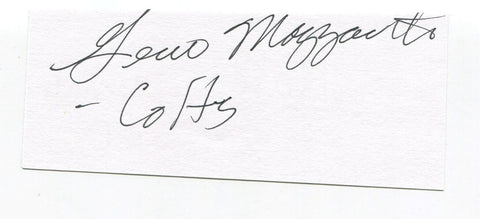 Geno Mazzanti
- Colts